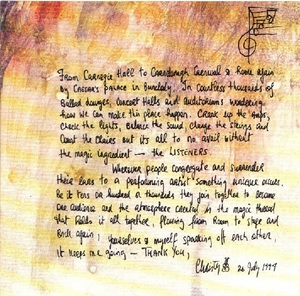 From Carnegie Hall to Carndonagh Carnival & Rome again
by Caesar's palace in Bundoly. In countless thousands of
Ballad lounges, concert Halls and Auditoriums wondering
how we can make this place happen. Crank up the amps,
check the lights, Balance the sound, change the strings and
Count the chairs but its all to no avail without
the magic ingredient — the LISTENERS
Wherever people congregate and surrender
their lives to a performing artist something unique occurs.
Be it tens or hundred or thousands they join together to become
one audience and the atmosphere created is the magic thread
that holds it all together, flowing from Room to stage and
Back again; yourselves & myself sparking off each other,
it keeps me going — THANK YOU,
Christy 26 July 1997